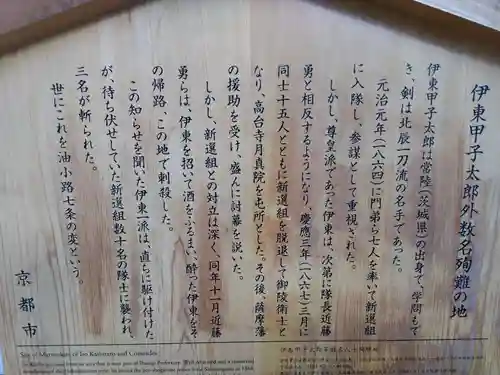 伊東甲子太郎外数名殉難の地
伊東甲子太郎は常陸(茨城県)の出身で、学問もで
き、剣は北辰一刀流の名手であった。
元治元年(一八六四)に門弟ら七人を率いて新選組
に入隊し、参謀として重視された。
しかし、尊皇派であった伊東は、次第に隊長近藤
勇と相反するようになり、慶應三年(一八六七)三月に
同士十五人とともに新選組を脱退して御陵衛士と
なり、高台寺月真院を屯所とした。その後、薩摩藩
の援助を受け、盛んに討幕を説いた。
しかし、新選組との対立は深く、同年十一月近藤
勇らは、伊東を招いて酒をふるまい、酔った伊東をそ
の帰路、この地で刺殺した。
この知らせを聞いた伊東一派は、直ちに駆け付けた
が、待ち伏せしていた新選組数十名の隊士に襲われ、
三名が斬られた。
世にこれを油小路七条の変という。
京都市
Site of Martyrdom of Ito Kashitaro and Comrades